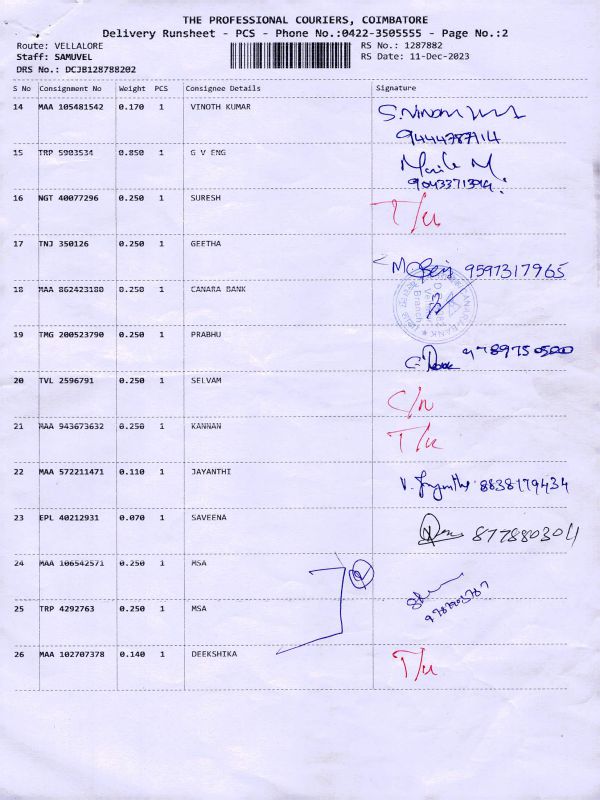 THE PROFESSIONAL COURIERS, COIMBATORE
Delivery Runsheet - PCS - Phone No.:0422-3505555 - Page No.:2
Route: VELLALORE RS No.: 1287882
Staff: SAMUVEL RS Date: 11-Dec-2023
DRS No.: DCJB128788202
S No Consignment No Weight PCS Consignee Details Signature
14 MAA 105481542 0.170 1 VINOTH KUMAR
9444787114
15 TRP 5903534 0.850 1 G V ENG
16 NGT 40077296 0.250 1 SURESH T/u
17 TNJ 350126 0.250 1 GEETHA 9597317965
18 MAA 862423180 0.250 1 CANARA BANK
19 TMG 200523790 0.250 1 PRABHU
20 TVL 2596791 0.250 1 SELVAM C/n
21 MAA 943673632 0.250 1 KANNAN T/u
22 MAA 572211471 0.110 1 JAYANTHI 8838179434
23 EPL 40212931 0.070 1 SAVEENA
24 MAA 106542571 0.250 1 MSA
25 TRP 4292763 0.250 1 MSA
26 MAA 102707378 0.140 1 DEEKSHIKA T/u